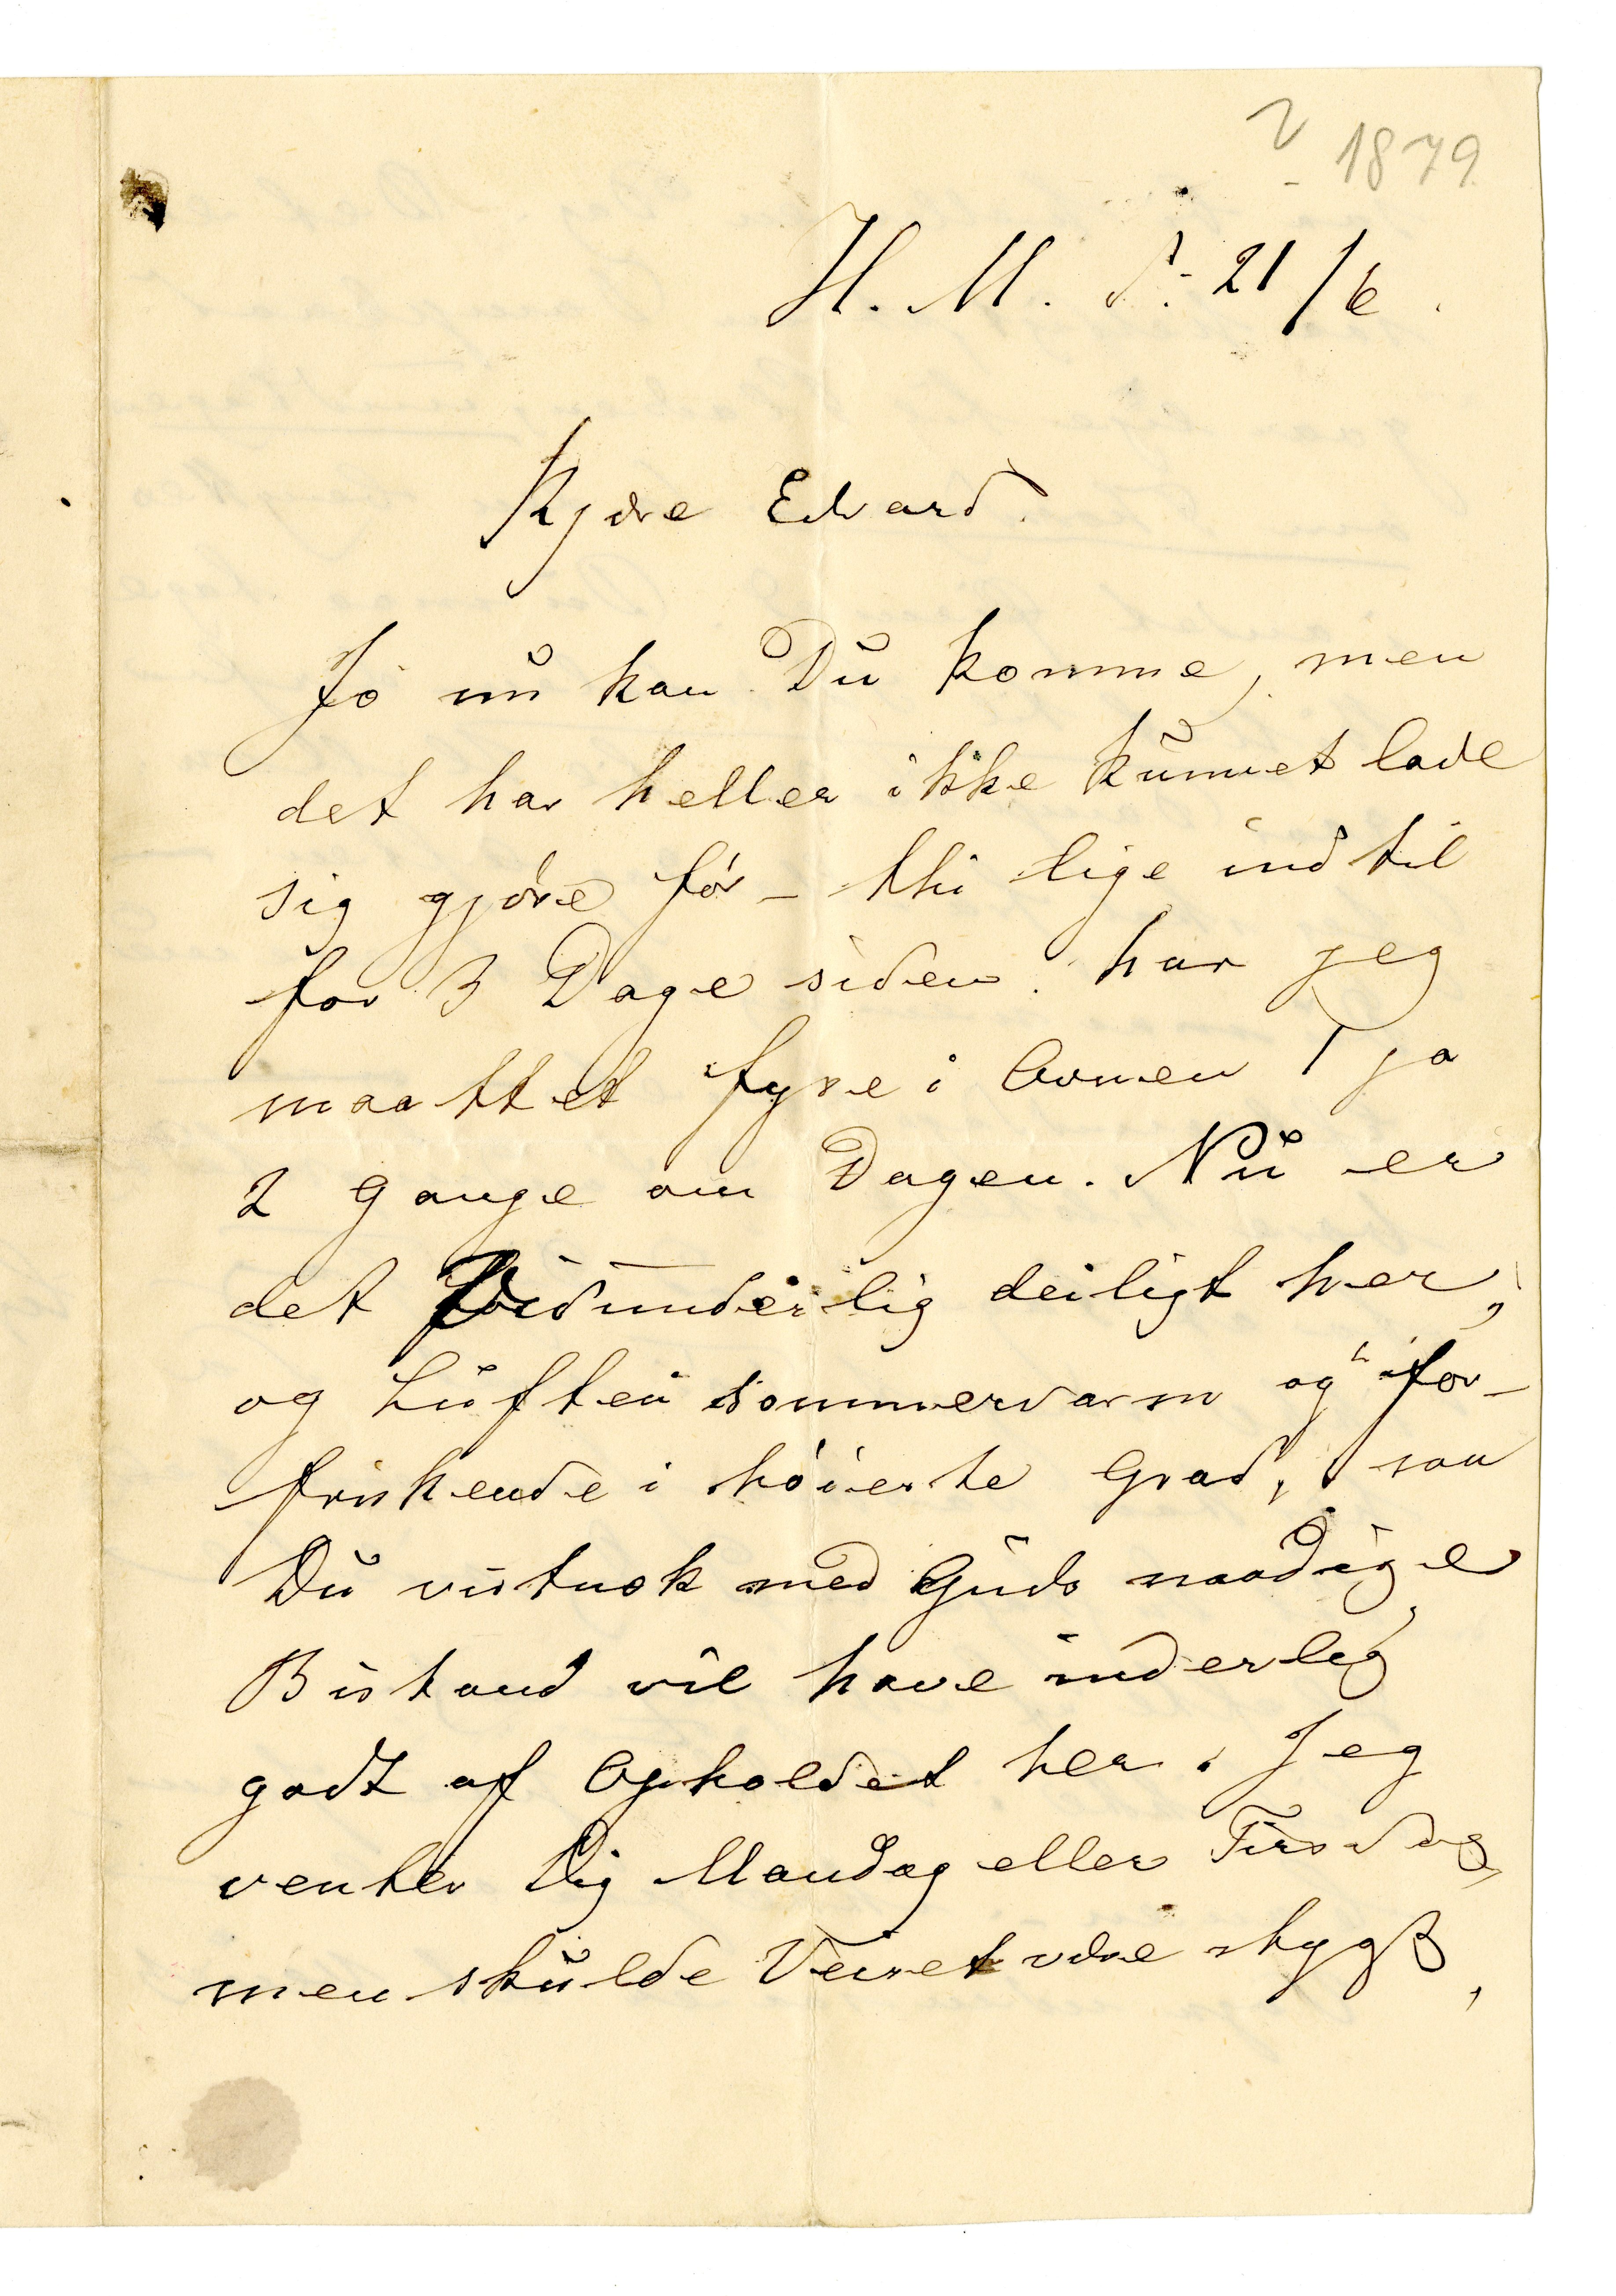 1879
H. M. d: 21/6.
Kjære Edvard.
Jo nu kan Du komme, men
det har heller ikke kunnet lade
sig gjöre för – thi lige indtil
for 3 Dage siden har jeg
maattet fyre i Ovnen 1 ja
2 Gange om Dagen. Nu er
det vidunderlig deiligt her,
og Luften sommervarm og for-
friskende i höieste Grad, saa
Du vistnok med Guds naadige
Bistand vil have inderlig
godt af Opholdet her. Jeg
venter Dig Mandag eller Tirsdag,
men skulde Veiret være stygt,